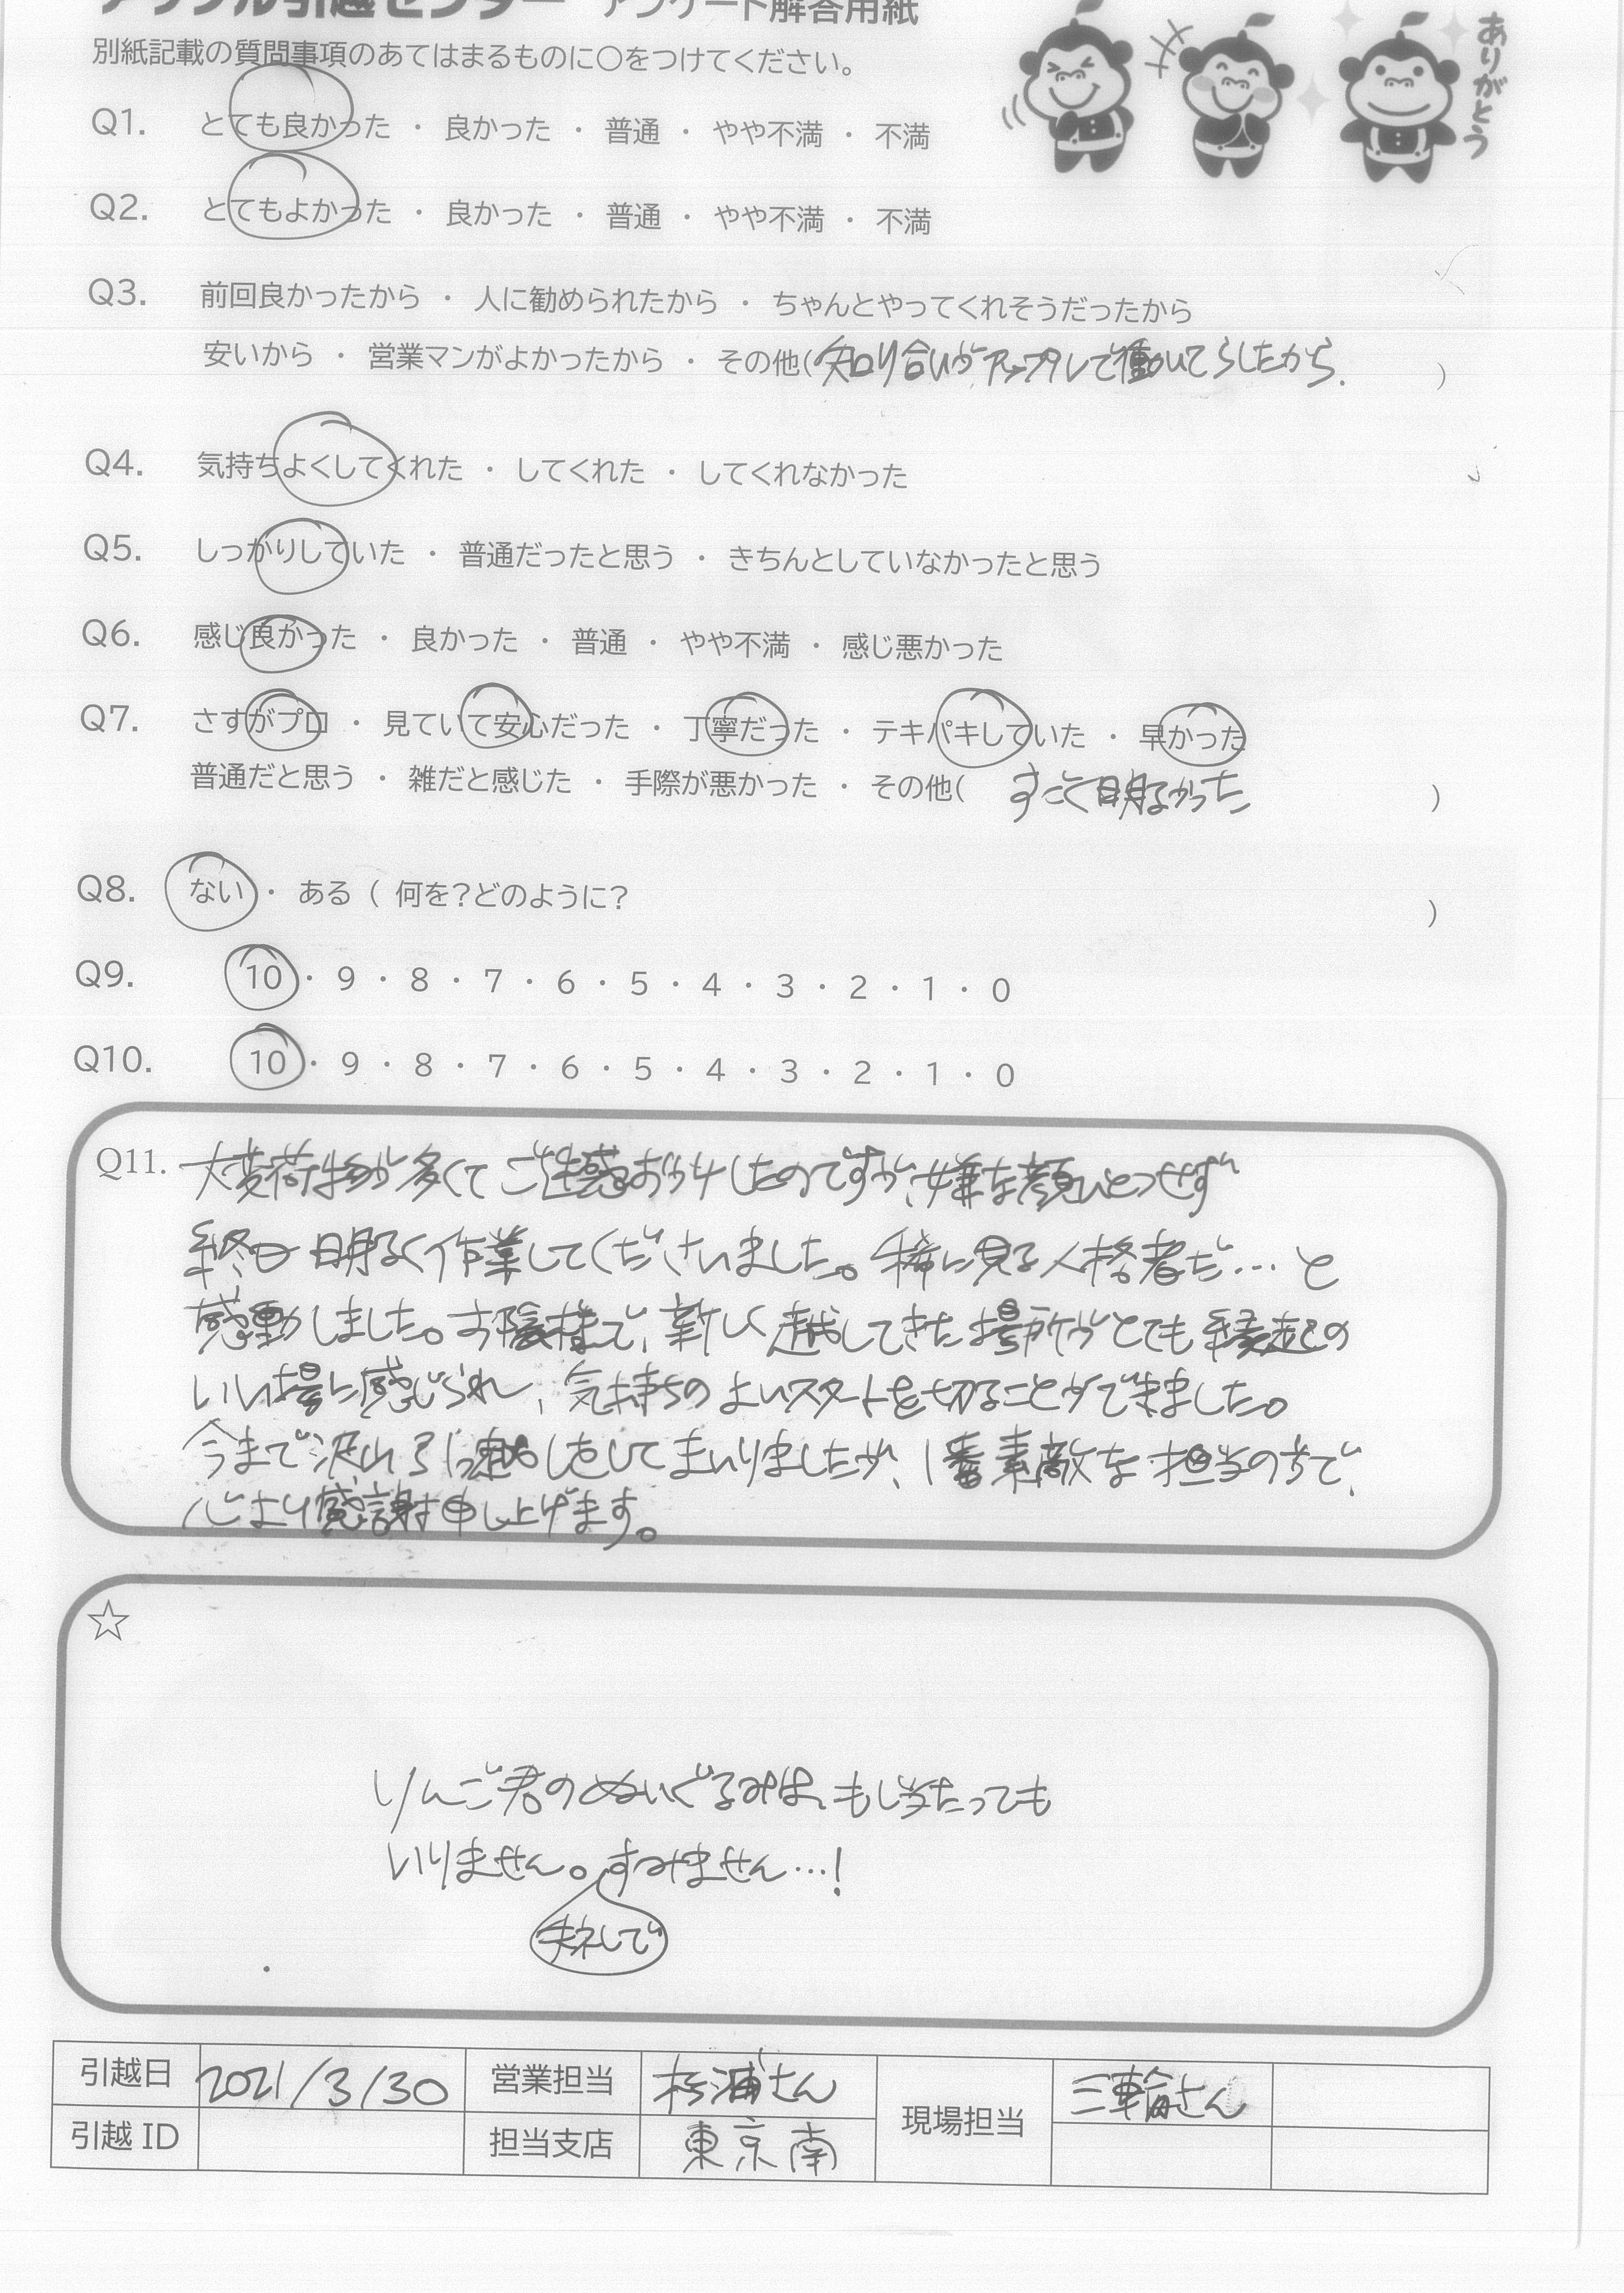 アップル引越センター アンケート解答用紙
別紙記載の質問事項のあてはまるものに○をつけてください。
ありがとう
Q1. とても良かった ・ 良かった ・ 普通 ・ やや不満 ・ 不満
Q2. とてもよかった ・ 良かった ・ 普通 ・ やや不満 ・ 不満
Q3. 前回良かったから ・ 人に勧められたから ・ ちゃんとやってくれそうだったから
安いから ・ 営業マンがよかったから ・ その他(知り合いがアップルで働いてらしたから. )
Q4. 気持ちよくしてくれた ・ してくれた ・ してくれなかった
Q5. しっかりしていた ・ 普通だったと思う ・ きちんとしていなかったと思う
Q6. 感じ良かった ・ 良かった ・ 普通 ・ やや不満 ・ 感じ悪かった
Q7. さすがプロ ・ 見ていて安心だった ・ 丁寧だった ・ テキパキしていた ・ 早かった
普通だと思う ・ 雑だと感じた ・ 手際が悪かった ・ その他( すごく明るかった )
Q8. ない ・ ある ( 何を?どのように? )
Q9. 10 ・ 9 ・ 8 ・ 7 ・ 6 ・ 5 ・ 4 ・ 3 ・ 2 ・ 1 ・ 0
Q10. 10 ・ 9 ・ 8 ・ 7 ・ 6 ・ 5 ・ 4 ・ 3 ・ 2 ・ 1 ・ 0
Q11. 大変荷物が多くてご迷惑おかけしたのですが、嫌な顔ひとつせず
終日明るく作業してくださいました。稀に見る人格者だ…と
感動しました。お陰様で、新しく越してきた場所がとても縁起の
いい場に感じられ、気持ちのよいスタートを切ることができました。
今まで沢山引っ越しをしてまいりましたが、1番素敵な担当の方で、
心より感謝申し上げます。
☆
りんご君のぬいぐるみは、もし当たっても
いりません。すみません…!
失礼して
引越日 2021/3/30 営業担当 杉浦さん 現場担当 三輪さん
引越 ID 担当支店 東京南